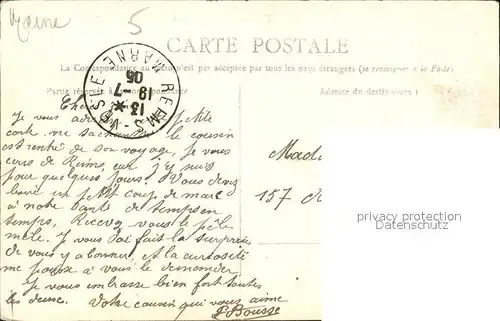 Marne
5
CARTE POSTALE
La Correspondance au recto n'est pas acceptée par tous les pays étrangers (se renseigner à la Poste)
Partie réservée à la correspondance
Adresse du destinataire
REIMS-VESLE
MARNE
13
19-7
05
Je vous adresse petite
carte ne sachant si le cousin
est rentré de son voyage, je vous
écris de Reims, car j'y suis
pour quelques jours. Vous devez
boire un petit coup de marc
à notre santé de temps en
temps, Recevez vous le pêle
mêle. Je vous ai fait la surprise
de vous y abonner, et la curiosité
me pousse à vous le demander
Je vous embrasse bien fort toutes
les deux. Votre cousin qui vous aime
P Bousse
Mada
157
privacy protection
Datenschutz